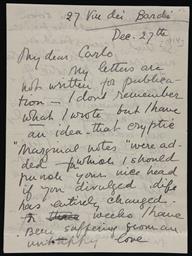 27 Via dei Bardi
Dec. 27th
My dear Carlo
My letters are
not written for publica-
tion — I don't remember
what I wrote but I have
an idea that cryptic
"marginal notes" were ad-
ded — which I should
your nice head
if you divulged
has entirely changed.
weeks I have
been suffering from an
unhappy love